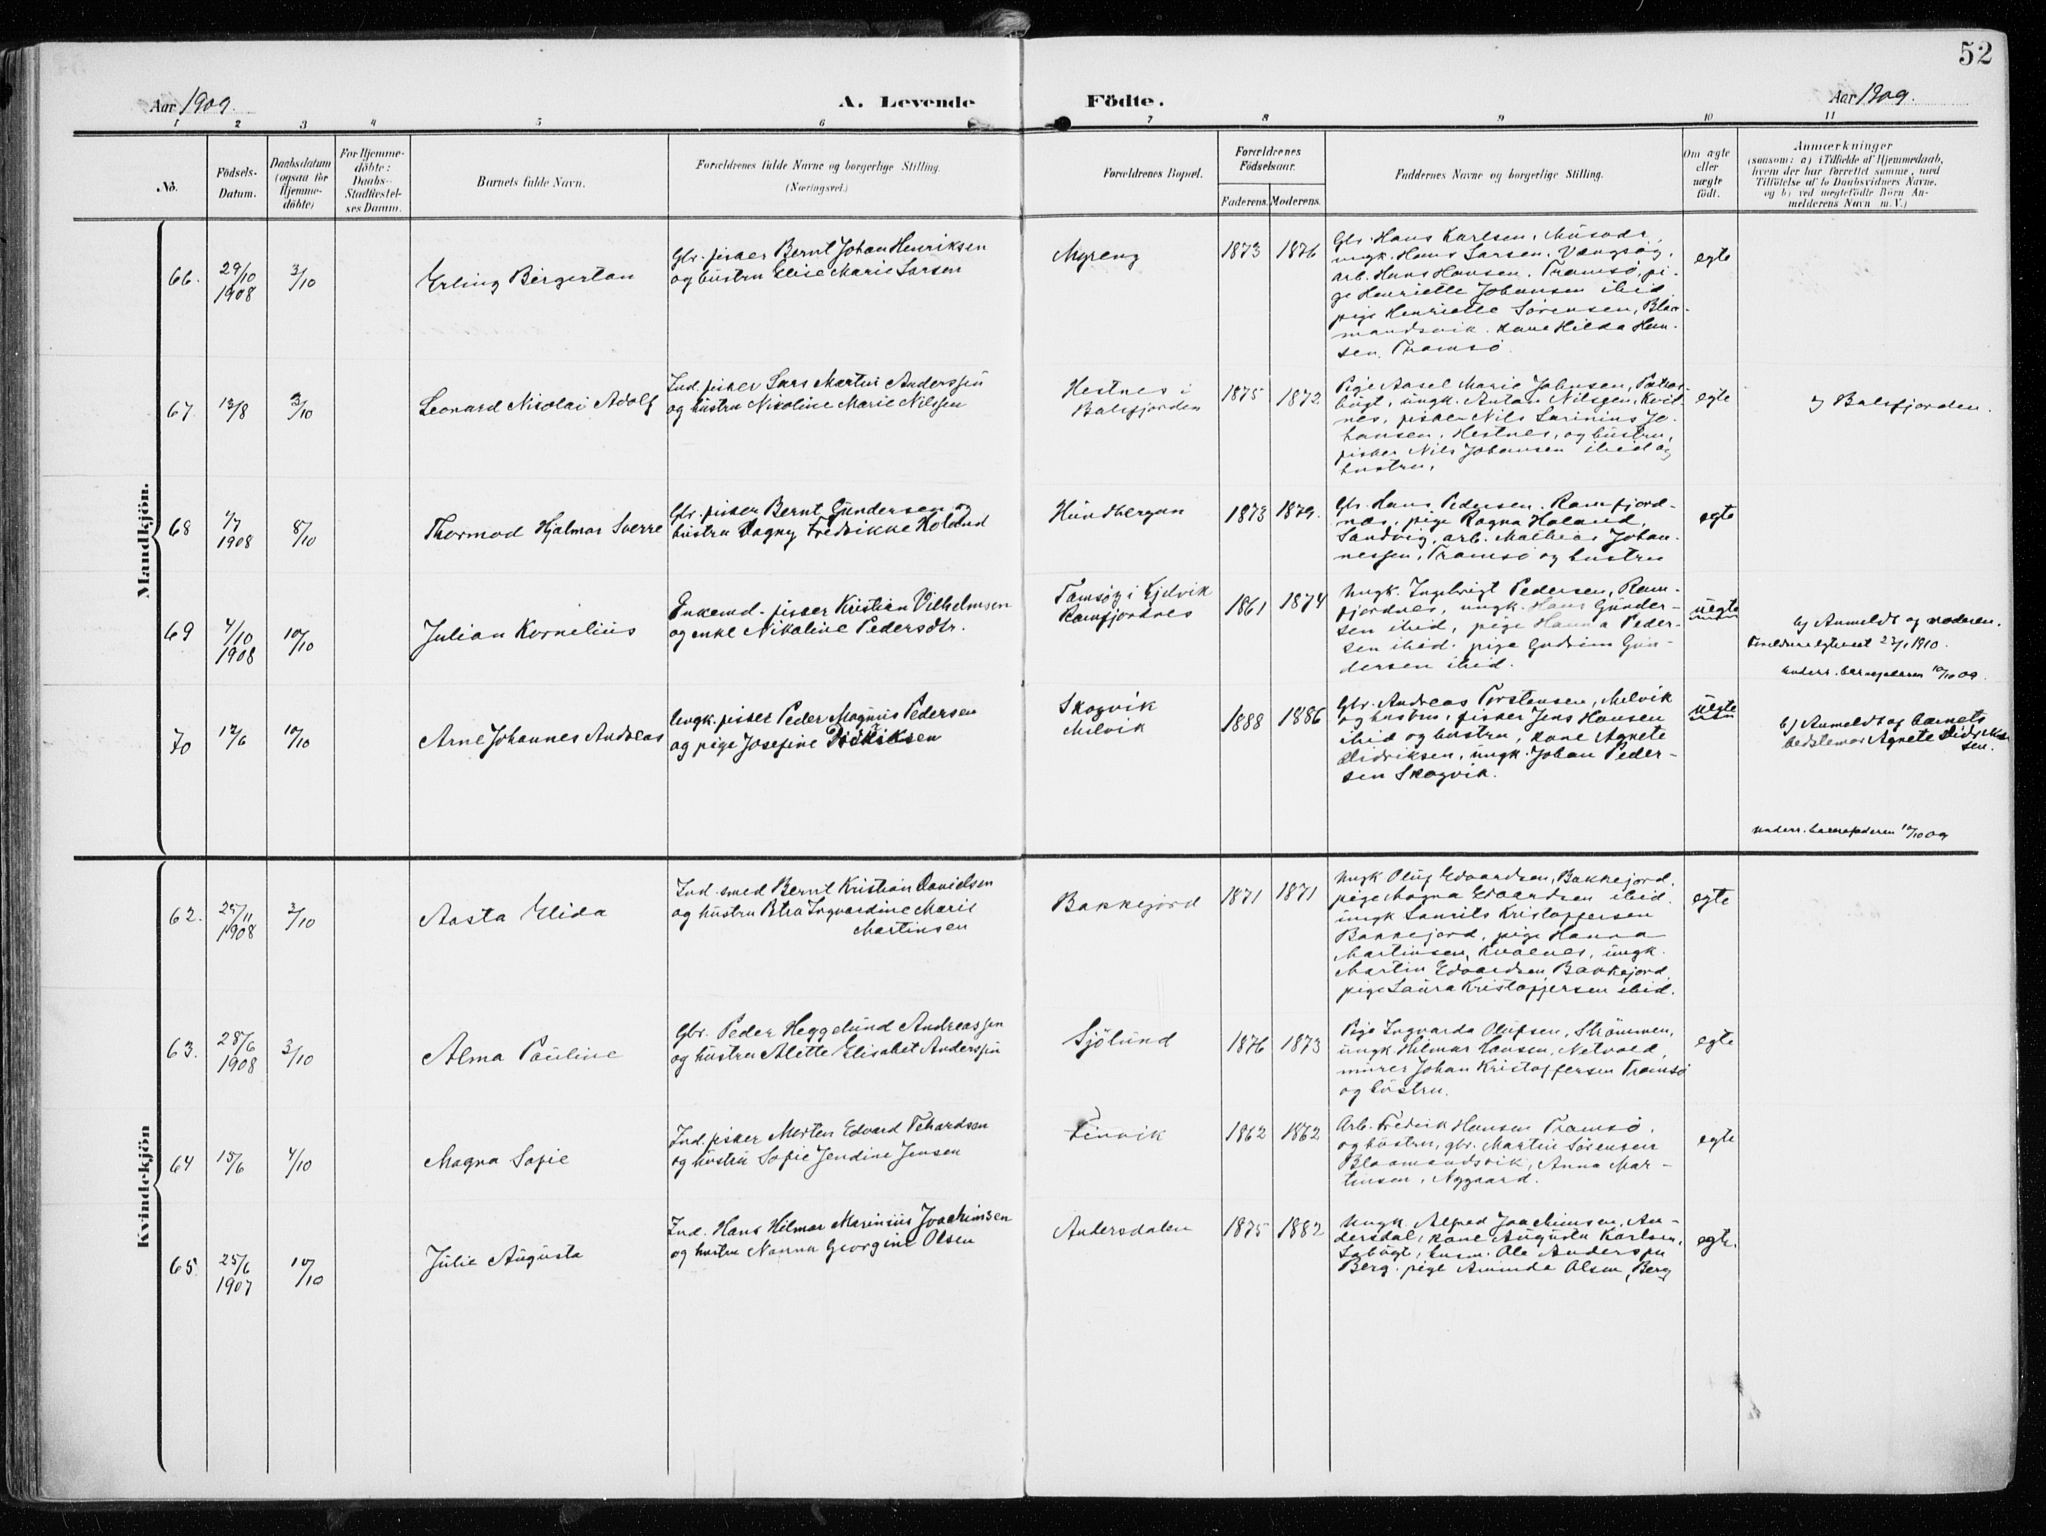 52
Aar 1909.
A. Levende
Födte.
Aar 1909.
1 2 3 4 5 6 7 8 9 10 11
No.
Födsels-
Datum.
Daabsdatum
(ogsaa for
Hjemme-
döbte)
For Hjemme-
döbte:
Daabs-
Stadfæstel-
ses Datum.
Barnets fulde Navn.
Forældrenes fulde Navne og borgerlige Stilling.
(Næringsvei.)
Forældrenes Bopæl.
Forældrenes
Födselsaar.
Faderens. Moderens.
Faddernes Navne og borgerlige Stilling.
Om ægte
eller
uægte
födt.
Anmærkninger
(saasom: a) i Tilfælde af Hjemmedaab,
hvem der har forrettet samme, med
Tilföielse af to Daabsvidners Navne.
og b) ved uægtefödte Börn An-
melderens Navn m. V.)
Mandkjön.
66.
29/10
1908
3/10
Erling Bergestan
Gbr. fisker Bernt Johan Henriksen
og hustru Elise Marie Larsen
Myreng
1873 1876
Gbr. Hans Karlsen,
ungk. Hans Larsen. Vængsøy,
arb. Hans Hansen. Tromsø, pi-
ge Henriette Johansen ibid
pige Henriette Sørensen, Blaa-
mandsvik. kone Hilda Han-
sen. Tromsø.
egte
67.
12/8
3/10
Leonard Nicolai Adolf
Ind. fisker Lars Martin Anderssen
og hustru Nicoline Marie Nilssen
Hestnes i
Balsfjorden
1875 1872
Pige Aasel Marie Johnsen,
ungk. Anton Nilssen, Kvit-
nes, fisker Nils Jo-
hansen, Hestnes, og hustru,
fisker Nils Johansen ibid og
hustru.
egte
Balsfjorden.
68
1/7
1908
8/10
Thormod Hjalmar Sverre
Gbr. fisker Bernt Gundersen og
hustru Dagny Fredrikke Holand
Hundbergan
1873 1879.
Gbr. Hans Pedersen. Ramfjord-
næs, pige Ragna Holand,
Sandvig, arb. Mathias Johan-
nessen, Tromsø og hustru
egte
69
4/10
1908
10/10
Julian Kornelius
Enkemd. fisker Kristian Vilhelmsen
og enke Nikoline Pedersdtr.
Tamsøy i Kjelvik
Ramfjordnes
1861 1874
Ungk. Ingebrigt Pedersen, Ram-
fjordnes, ungk. Hans Gunder-
sen ibid, pige Hanna Peder-
sen ibid. pige Gudrun Gun-
dersen ibid.
uegte
b) Anmeldt og moderen.
Forældrene egteviet 23/1 1910.
underr. barnefaderen 10/10 09
70
12/6
10/10
Arne Johannes Andreas
Ungk. fisker Peder Magnus Pedersen
og pige Josefine Didriksen
Skogvik
Mevik
1888 1886
Gbr. Andreas Torstensen, Mevik
og hustru, fisker Jens Hansen
ibid og hustru, kone Agnete
Didriksen, ungk. Johan Peder-
sen Skogvik.
uegte
b) Anmeldt og barnets
bedstemor Agnete Didrik-
sen.
underr. barnefaderen 10/10 09
Kvindekjön
62.
25/11
1908
3/10
Aasta Elida
Ind. smed Bernt Kristian Davidsen
og hustru Petra Ingvardine Marie
Martinsen
Bakkejord
1871 1871
Ungk Oluf Edvardsen, Bakkejord,
pige Magna Edvardsen ibid.
ungk Laurits Kristoffersen
Bakkejord, pige Hanna
Martinsen, Kvalnes, ungk.
Martin Edvardsen, Bakkejord,
pige Laura Kristoffersen ibid.
egte
63.
28/6
1908
3/10
Alma Pauline
Gbr. Peder Heggelund Andreassen
og hustru Alette Elisabet Anderssen
Sjølund
1876 1873
Pige Ingvarda Olufsen, Strømmen,
ungk. Hilmar Hansen,
murer Johan Kristoffersen Tromsø
og hustru.
egte
64
15/6
4/10
Magna Sofie
Ind. fisker Morten Edvard
og hustru Sofie Jendine Jensen
Finvik
1862 1862
Arb. Fredrik Hansen Tromsø.
og hustru, gbr. Martin Sørensen
Blaamandsvik, Anna Mar-
tinsen, Nygaard.
egte
65.
25/6
1907
10/10
Julie Augusta
Ind. Hans Hilmar Marinius Joachimsen
og hustru Nanna Georgine Olsen
Andersdalen
1875 1882
Ungk. Alfred Joachimsen, An-
dersdal, kone Augusta Karlsen,
husm. Ole Anderssen
Berg. pige Olsen, Berg
egte.